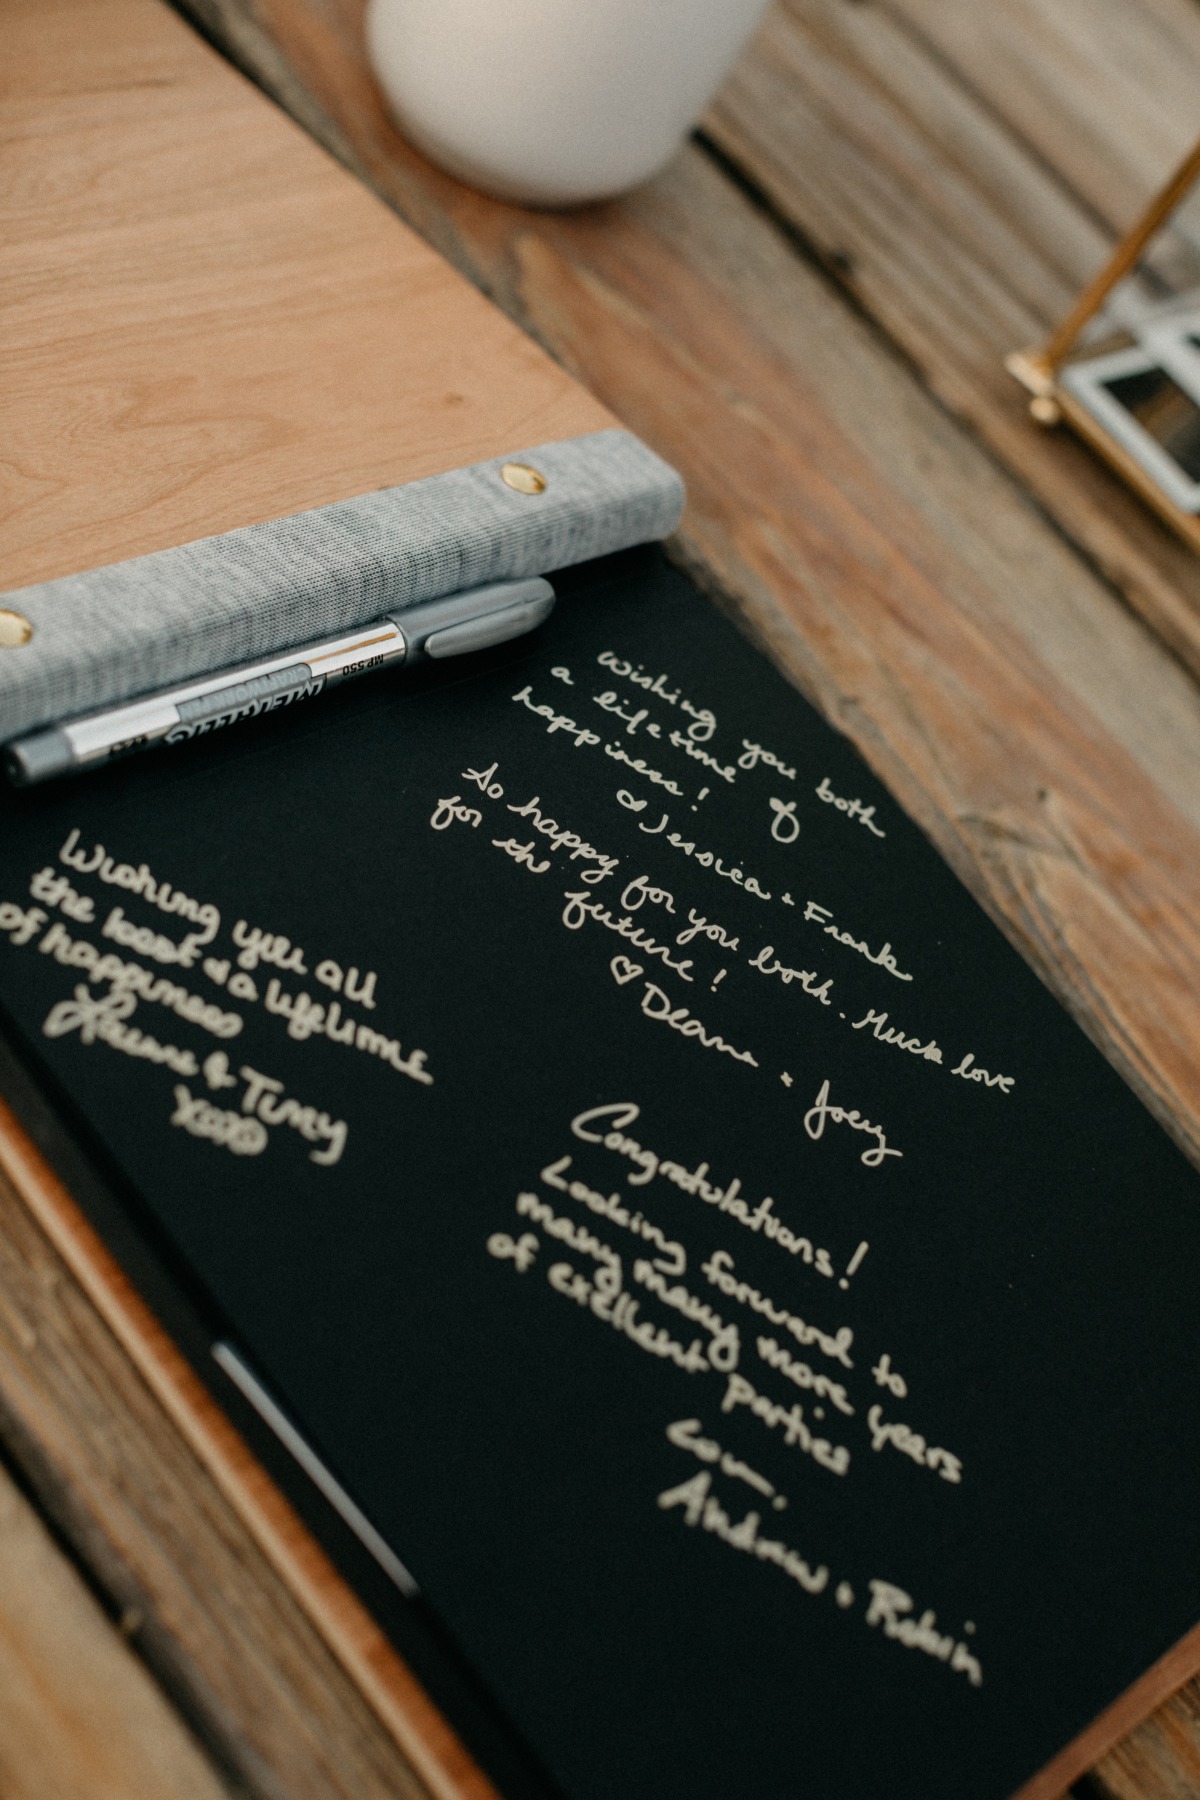 MP 550
METALLIC
CRAFTWORK
wishing you both
a lifetime of
happiness!
Jessica + Frank
So happy for you both. Much love
for the future!
♡ Deana + Joey
Wishing you all
the best & a lifetime
of happiness
& Timy
xoxo
Congratulations!
Looking forward to
many many more years
of exellent parties
Andrew + Robin